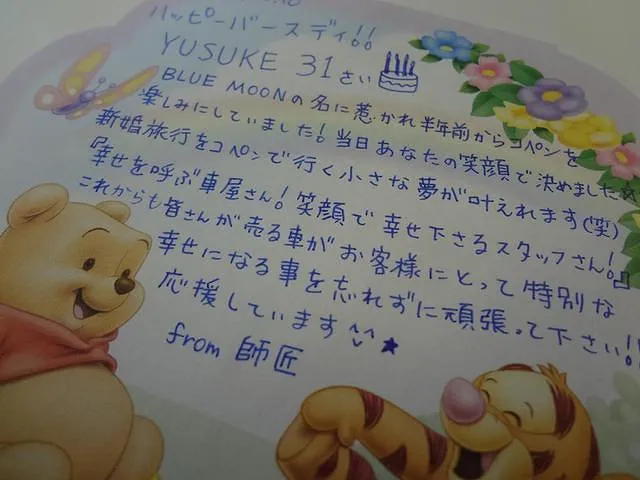 ハッピーバースディ!!
YUSUKE 31さい
BLUE MOONの名に惹かれ半年前からコペンを
楽しみにしていました!当日あなたの笑顔で決めました☆
新婚旅行をコペンで行く小さな夢が叶えれます(笑)
「幸せを呼ぶ車屋さん!笑顔で幸せ下さるスタッフさん!」
これからも皆さんが売る車がお客様にとって特別な
幸せになる事を忘れずに頑張って下さい!!
応援しています^^★
from 師匠